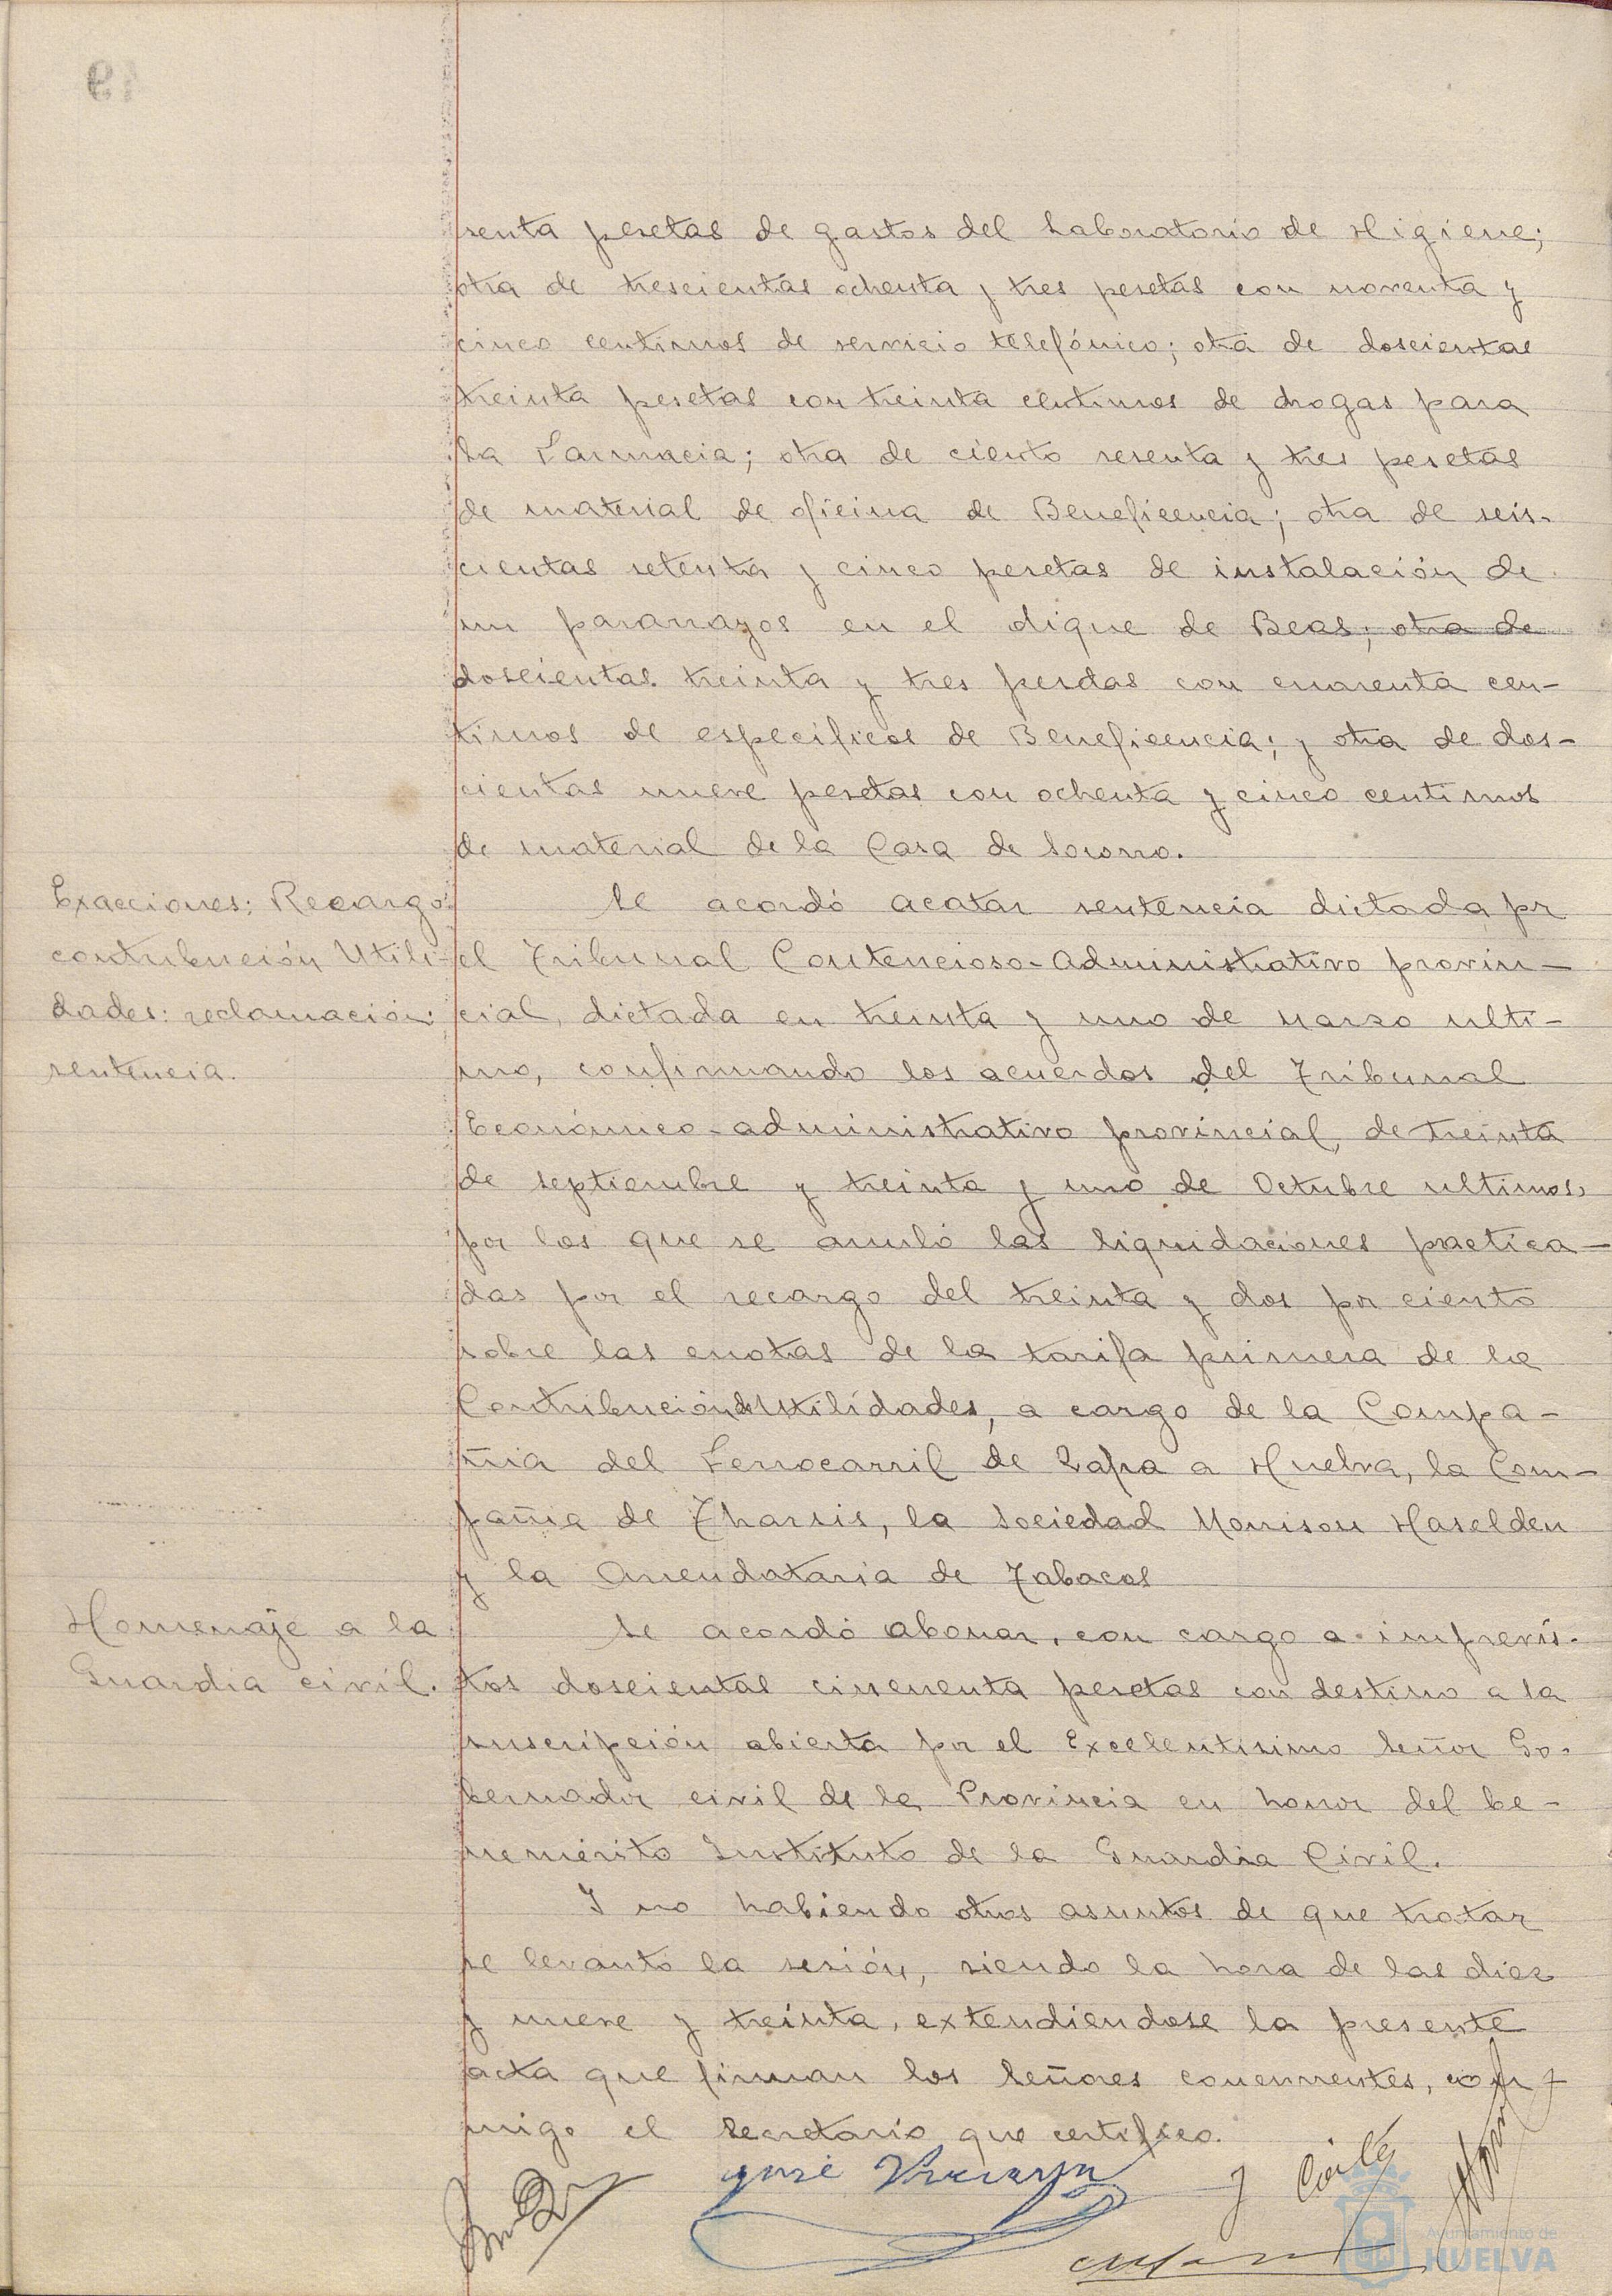 senta pesetas de gastos del Laboratorio de Higiene;
otra de trescientas ochenta y tres pesetas con noventa y
cinco centimos de servicio telefónico; otra de doscientas
treinta pesetas con treinta centimos de drogas para
la Farmacia; otra de ciento sesenta y tres pesetas
de material de oficina de Beneficencia; otra de seis-
cientas setenta y cinco pesetas de instalación de
un pararrayos en el dique de Beas; otra de
doscientas treinta y tres pesetas con cuarenta cen-
timos de especificos de Beneficencia; y otra de dos-
cientas nueve pesetas con ochenta y cinco centimos
de material de la Casa de Socorro.
Exacciones: Recargo
contribución Utili-
dades: reclamación:
sentencia.
Se acordó acatar sentencia dictada por
el Tribunal Contencioso-Administrativo provin-
cial, dictada en treinta y uno de Marzo ulti-
mo, confirmando los acuerdos del Tribunal
Económico-administrativo provincial, de treinta
de septiembre y treinta y uno de Octubre ultimos,
por los que se anuló las liquidaciones practica-
das por el recargo del treinta y dos por ciento
sobre las cuotas de la tarifa primera de la
Contribución de Utilidades, a cargo de la Compa-
ñia del Ferrocarril de Zafra a Huelva, la Com-
pañia de Tharsis, la Sociedad Morrison Haselden
y la Arrendataria de Tabacos
Homenaje a la
Guardia civil.
Se acordó abonar, con cargo a imprevis-
tos doscientas cincuenta pesetas con destino a la
suscripción abierta por el Excelentisimo Señor Go-
bernador civil de la Provincia en honor del be-
nemérito Instituto de la Guardia Civil.
Y no habiendo otros asuntos de que tratar
se levantó la sesión, siendo la hora de las diez
y nueve y treinta, extendiendose la presente
acta que firman los Señores concurrentes, con-
migo el Secretario que certifico.
José
Ayuntamiento de
HUELVA